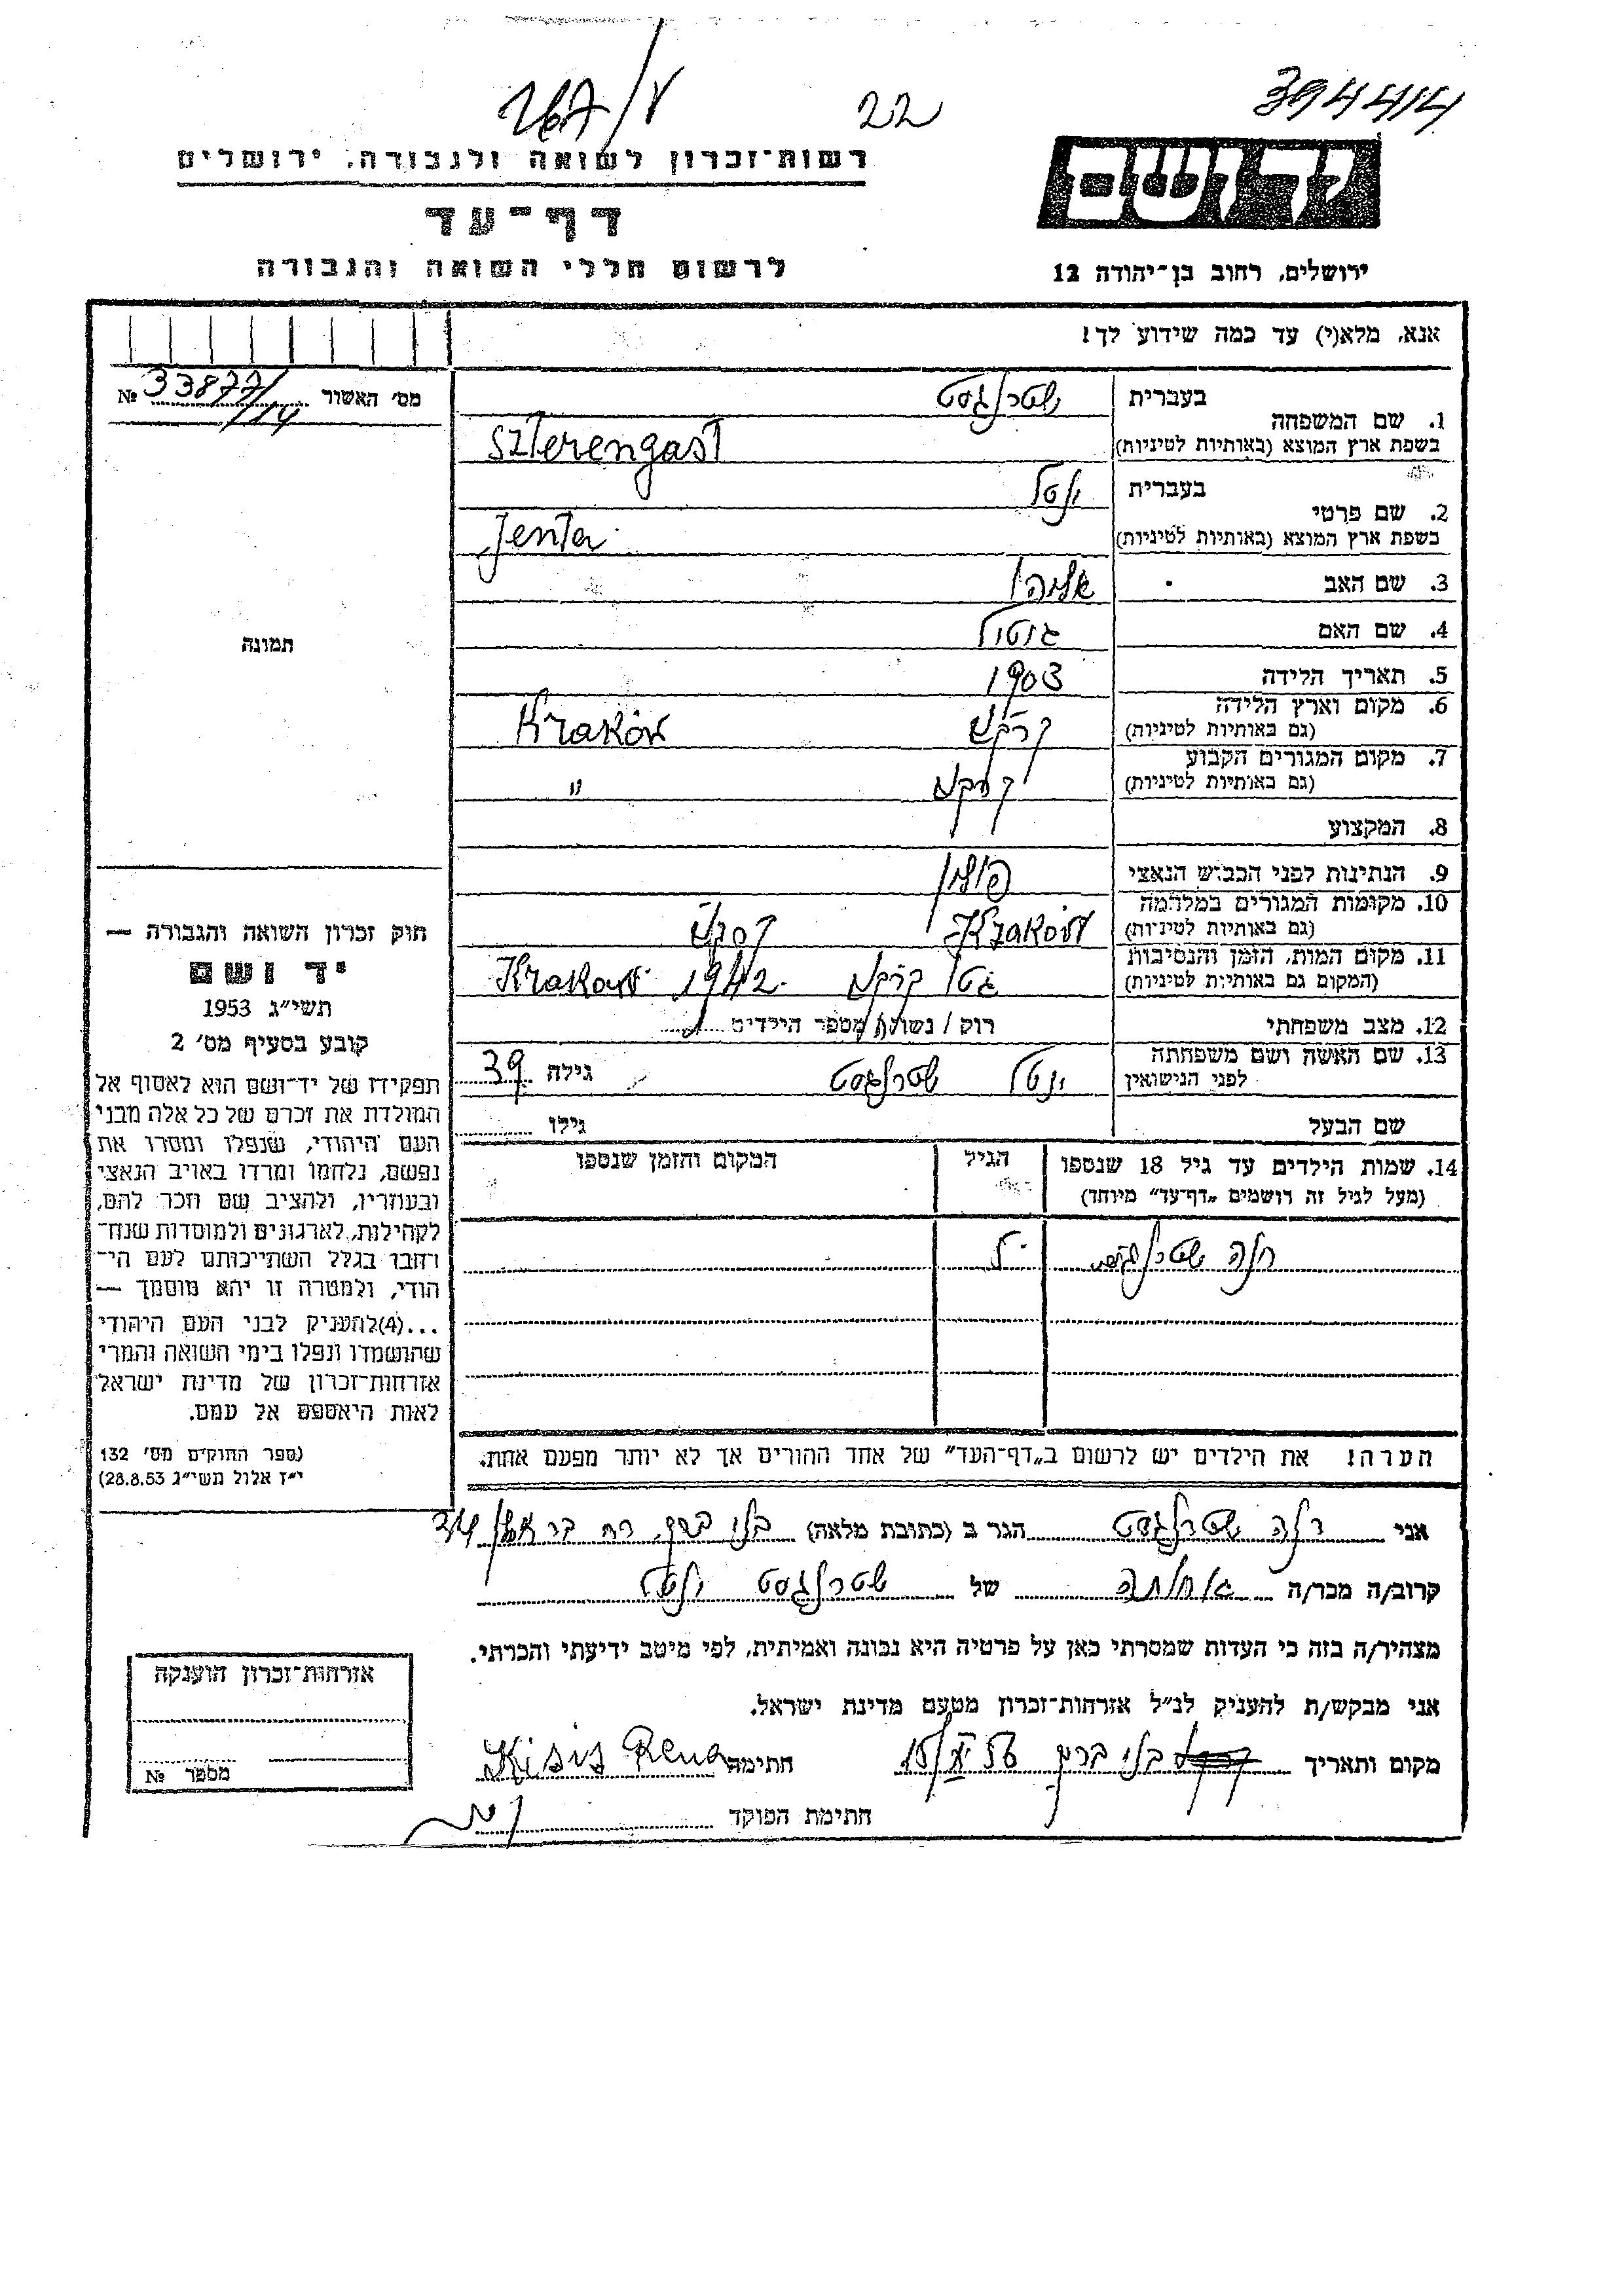 394414
22
267/V
יד ושם
ירושלים, רחוב בן־יהודה 12
רשות־זכרון לשואה ולגבורה, ירושלים
דף־עד
לרשום חללי השואה והגבורה
אנא, מלא(י) עד כמה שידוע לך!
מס׳ האשור № 33877/14
1. שם המשפחה
בעברית שטרנגסט
בשפת ארץ המוצא (באותיות לטיניות) Szterengast
2. שם פרטי
בעברית ינטל
בשפת ארץ המוצא (באותיות לטיניות) Jenta
3. שם האב אליהו
4. שם האם גוטל
5. תאריך הלידה 1903
6. מקום וארץ הלידה (גם באותיות לטיניות) קרקוב Kraków
7. מקום המגורים הקבוע (גם באותיות לטיניות) קרקוב "
8. המקצוע
9. הנתינות לפני הכבוש הנאצי פולין
10. מקומות המגורים במלחמה (גם באותיות לטיניות) Kraków קרקוב
11. מקום המות, הזמן והנסיבות (המקום גם באותיות לטיניות) גטו קרקוב 1942. Krakow
12. מצב משפחתי רוק / נשוי / מספר הילדים
13. שם האשה ושם משפחתה לפני הנישואין ינטל שטרנגסט גילה 39
שם הבעל גילו
14. שמות הילדים עד גיל 18 שנספו (מעל לגיל זה רושמים „דף־עד״ מיוחד)
הגיל
המקום והזמן שנספו
חנה שטרנגסט
הערה! את הילדים יש לרשום ב„דף־העד״ של אחד ההורים אך לא יותר מפעם אחת.
תמונה
חוק זכרון השואה והגבורה —
יד ושם
תשי״ג 1953
קובע בסעיף מס׳ 2
תפקידו של יד־ושם הוא לאסוף אל
המולדת את זכרם של כל אלה מבני
העם היהודי, שנפלו ומסרו את
נפשם, נלחמו ומרדו באויב הנאצי
ובעוזריו, ולהציב שם וזכר להם,
לקהילות, לארגונים ולמוסדות שנח־
רחבו בגלל השתייכותם לעם הי־
הודי, ולמטרה זו יהא מוסמך —
...(4)להעניק לבני העם היהודי
שהושמדו ונפלו בימי השואה והמרי
אזרחות־זכרון של מדינת ישראל
לאות היאספם אל עמם.
(ספר החוקים מס׳ 132
י״ז אלול תשי״ג 28.8.53)
אני רנה שטרנגסט הגר ב (כתובת מלאה) בני ברק רח
קרוב/ה מכר/ה של שטרנגסט ינטל
מצהיר/ה בזה כי העדות שמסרתי כאן על פרטיה היא נכונה ואמיתית, לפי מיטב ידיעתי והכרתי.
אני מבקש/ת להעניק לנ״ל אזרחות־זכרון מטעם מדינת ישראל.
מקום ותאריך בני ברק חתימה Kisis Rena
חתימת הפוקד
אזרחות־זכרון הוענקה
מספר №